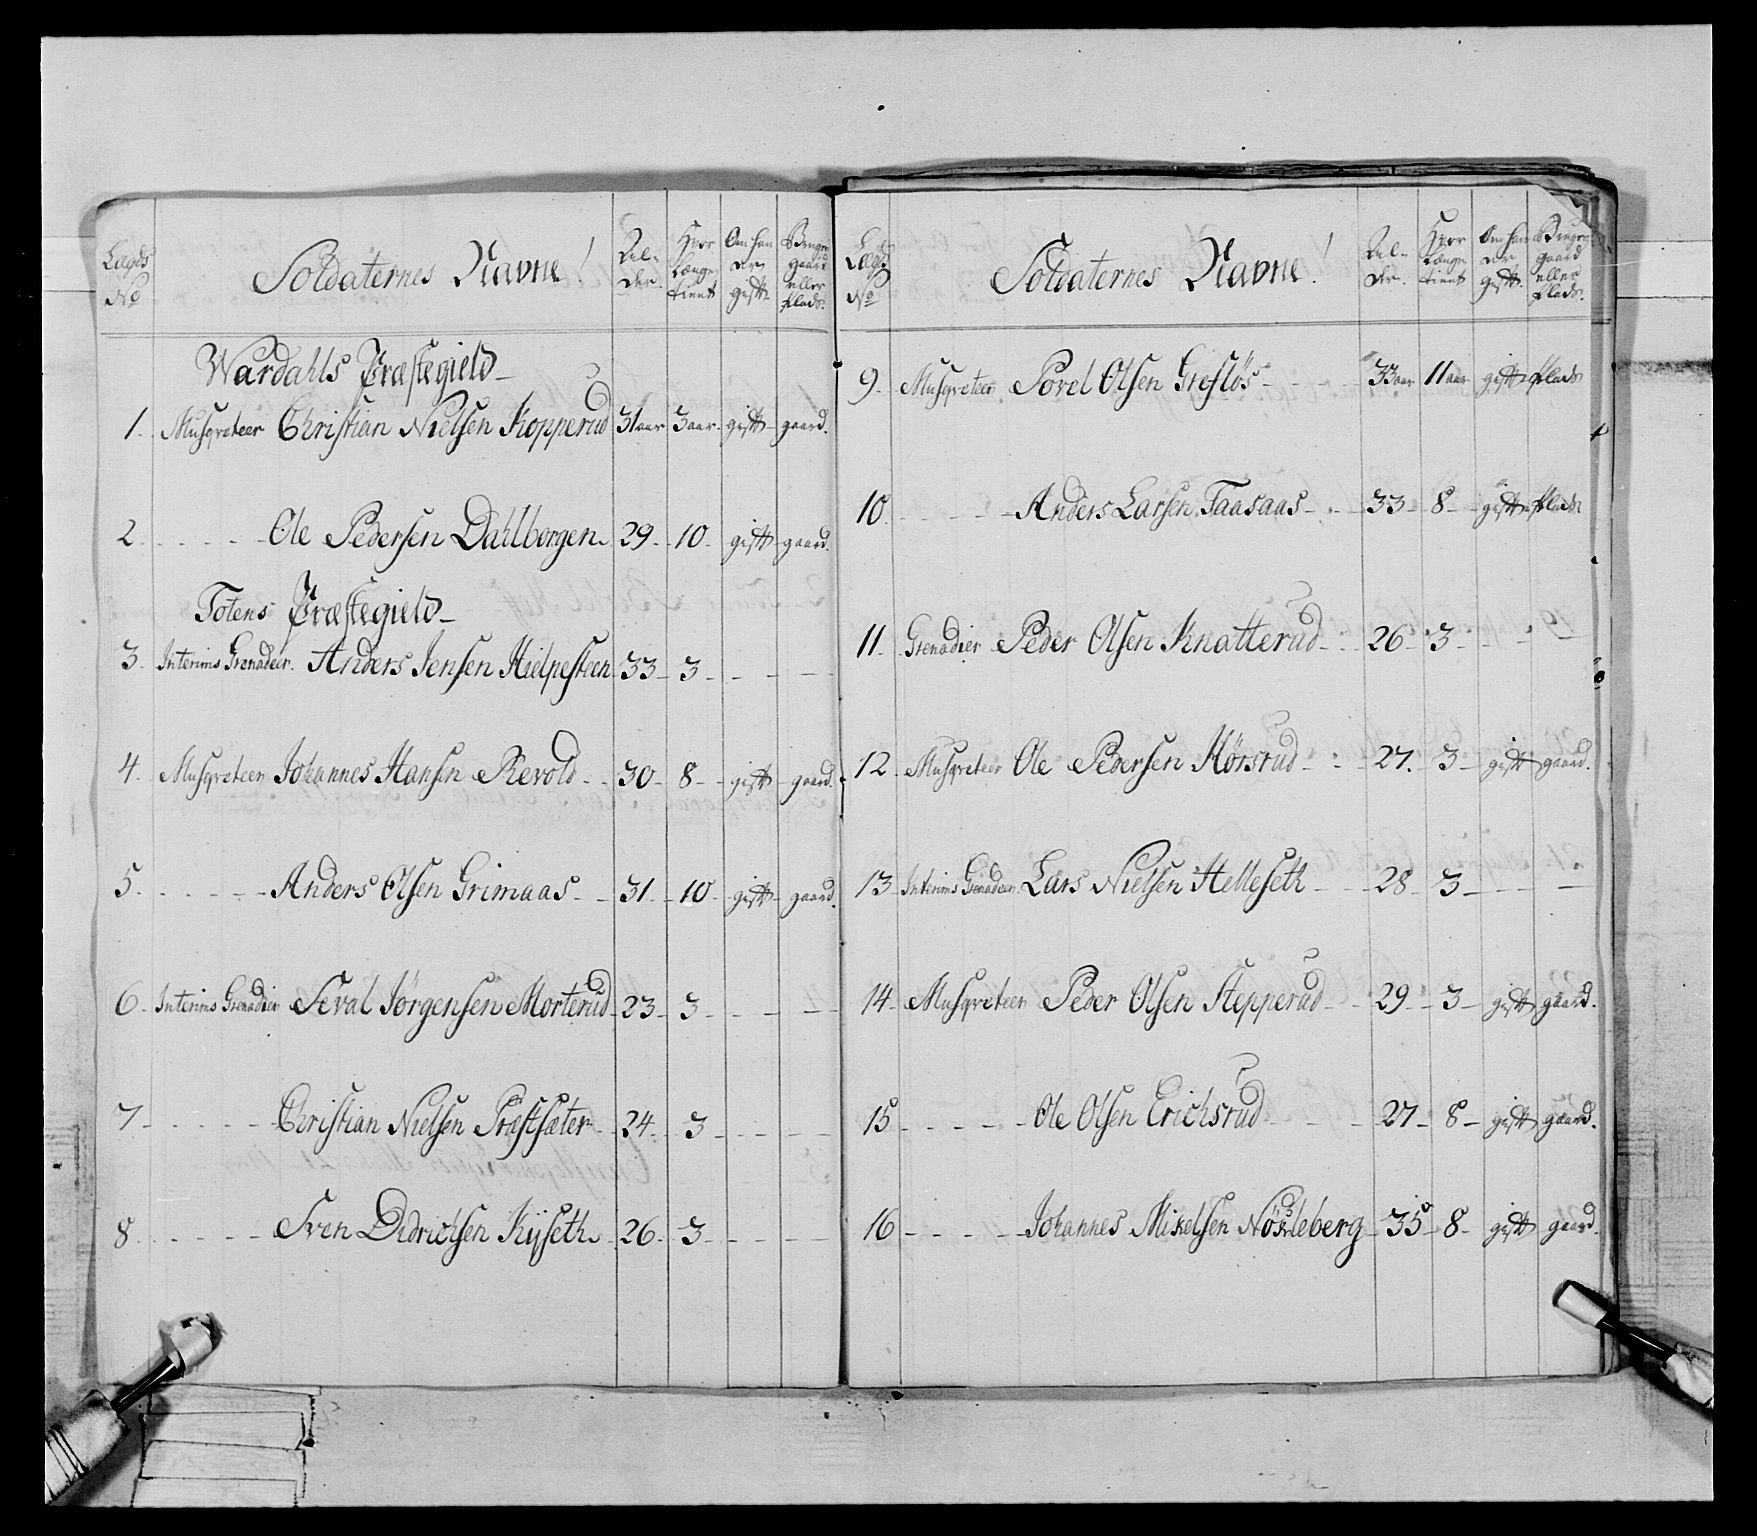 Lægds No | Soldaternes Navne! | Al- der. | Hvor længe tient | Om han er gift. | Bruger gaard eller Plads.
Wardahls Præstegield
1. Musqveteer Christian Nielsen Kopperud 31 aar 3 aar. gift gaard.
2. - - - - Ole Pedersen Dahlborgen. 29. 10. gift gaard.
Totens Præstegield
3. Interims Grenadeer. Anders Jensen Hielpesteen 33 3 - - -
4. Musqveteer Johannes Hansen Revold 30 8 gift gaard.
5. - - - - Anders Olsen Grimaas 31 10 gift gaard.
6. Interims Grenadeer Seval Jörgensen Morterud 23 3 - - -
7 - - - - Christian Nielsen Præstsæter 24. 3 - - -
8 - - - - Sven Didrichsen Kyseth. 26. 3 - - -
Lægds No | Soldaternes Navne! | Al- der. | Hvor længe tient | Om han er gift. | Bruger gaard eller Plads.
9. Musqveteer Povel Olsen Greflös 33 aar 11 aar gift Plads
10. - - - - Anders Larsen Taasaas 33 8 gift Plads
11. Grenadier Peder Olsen Knatterud 26 3 - - -
12 Musqveteer Ole Pedersen Hörsrud 27. 3 gift gaard.
13 Interims Grenadeer. Lars Nielsen Helleseth 28 3 - - -
14. Musqveteer Peder Olsen Stepperud 29 3 gift gaard.
15 - - - - Ole Olsen Erichsrud 27 8 gift gaard.
16 - - - - Johannes Mikelsen Nösleberg 35 8 gift gaard.